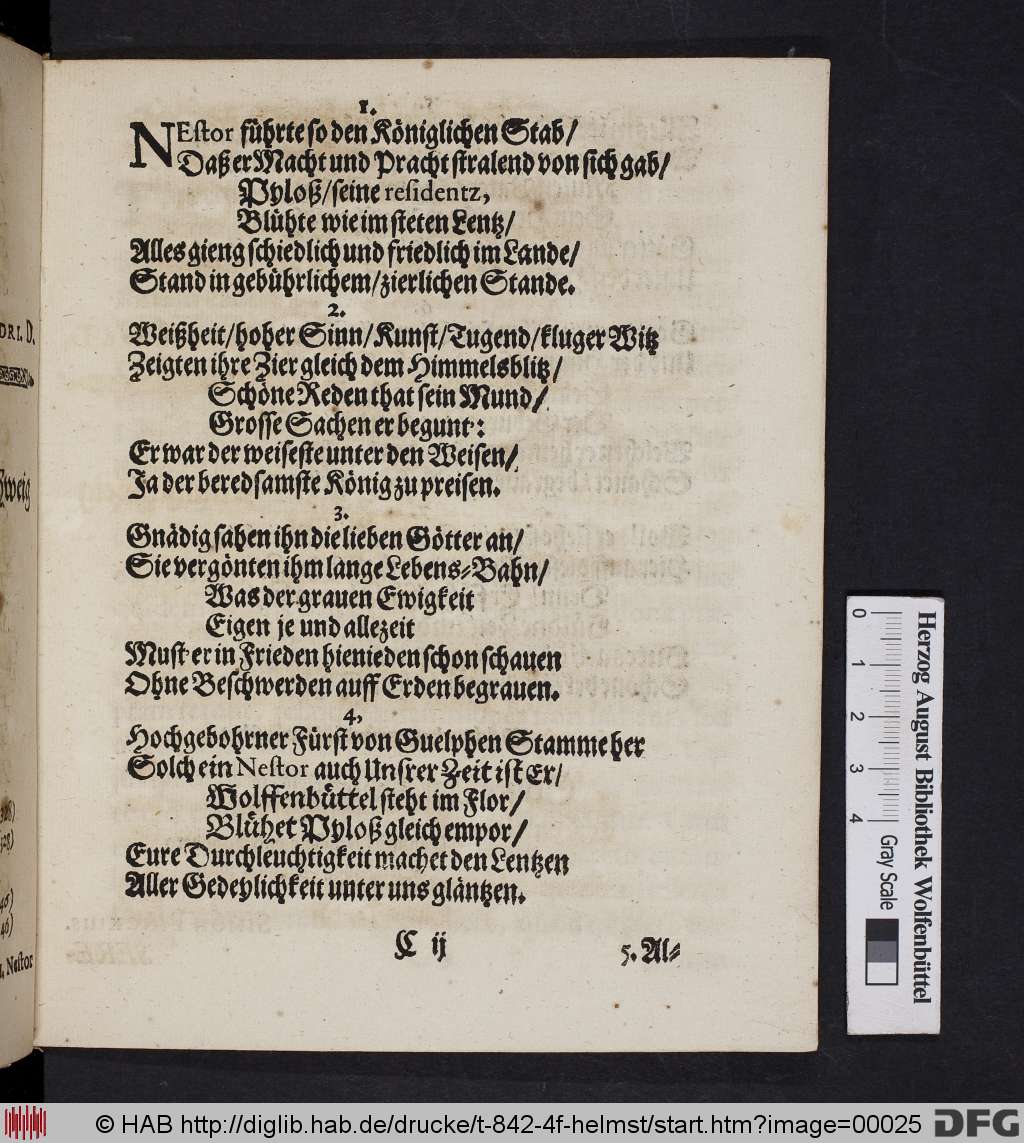 1.
NEstor führte so den Königlichen Stab/
Daß er Macht und Pracht stralend von sich gab/
Pyloß/seine residentz,
Blühte wie im steten Lentz/
Alles gieng schiedlich und friedlich im Lande/
Stand in gebührlichem/zierlichen Stande.
2.
Weißheit/hoher Sinn/Kunst/Tugend/kluger Witz
Zeigten ihre Zier gleich dem Himmelsblitz/
Schöne Reden that sein Mund/
Grosse Sachen er begunt:
Er war der weiseste unter den Weisen/
Ja der beredsamste König zu preisen.
3.
Gnädig sahen ihn die lieben Götter an/
Sie vergönten ihm lange Lebens-Bahn/
Was der grauen Ewigkeit
Eigen je und allezeit
Must er in Frieden hienieden schon schauen
Ohne Beschwerden auff Erden begrauen.
4.
Hochgebohrner Fürst von Guelphen Stamme her
Solch ein Nestor auch Unsrer Zeit ist Er/
Wolffenbüttel steht im Flor/
Blühet Pyloß gleich empor/
Eure Durchleuchtigkeit machet den Lentzen
Aller Gedeylichkeit unter uns gläntzen.
C ij
5. Al-
DRI. D.
zweig
46)
46)
Nestor
0 1 2 3 4
Gray Scale
Herzog August Bibliothek Wolfenbüttel
© HAB http://diglib.hab.de/drucke/t-842-4f-helmst/start.htm?image=00025
DFG